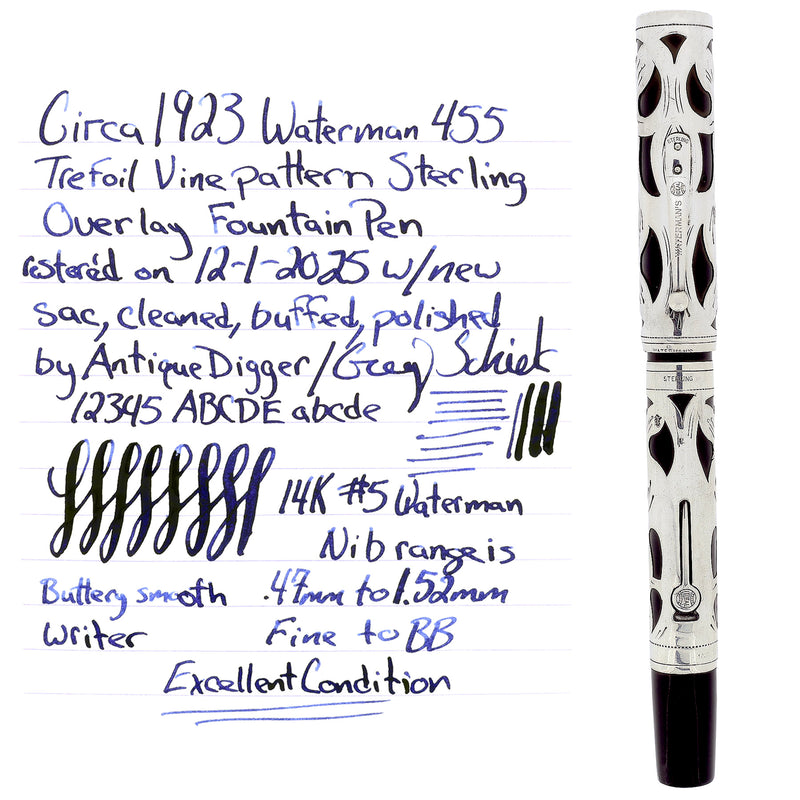 Circa 1923 Waterman 455
Trefoil Vine pattern Sterling
Overlay Fountain Pen
restored on 12-1-2025 w/new
sac, cleaned, buffed, polished
by Antique Digger/Greg Schiek
12345 ABCDE abcde
14K #5 Waterman
Nib range is
Buttery smooth .47mm to 1.52mm
writer Fine to BB
Excellent Condition
STERLING
WATERMAN'S
WATERMAN'S
STERLING